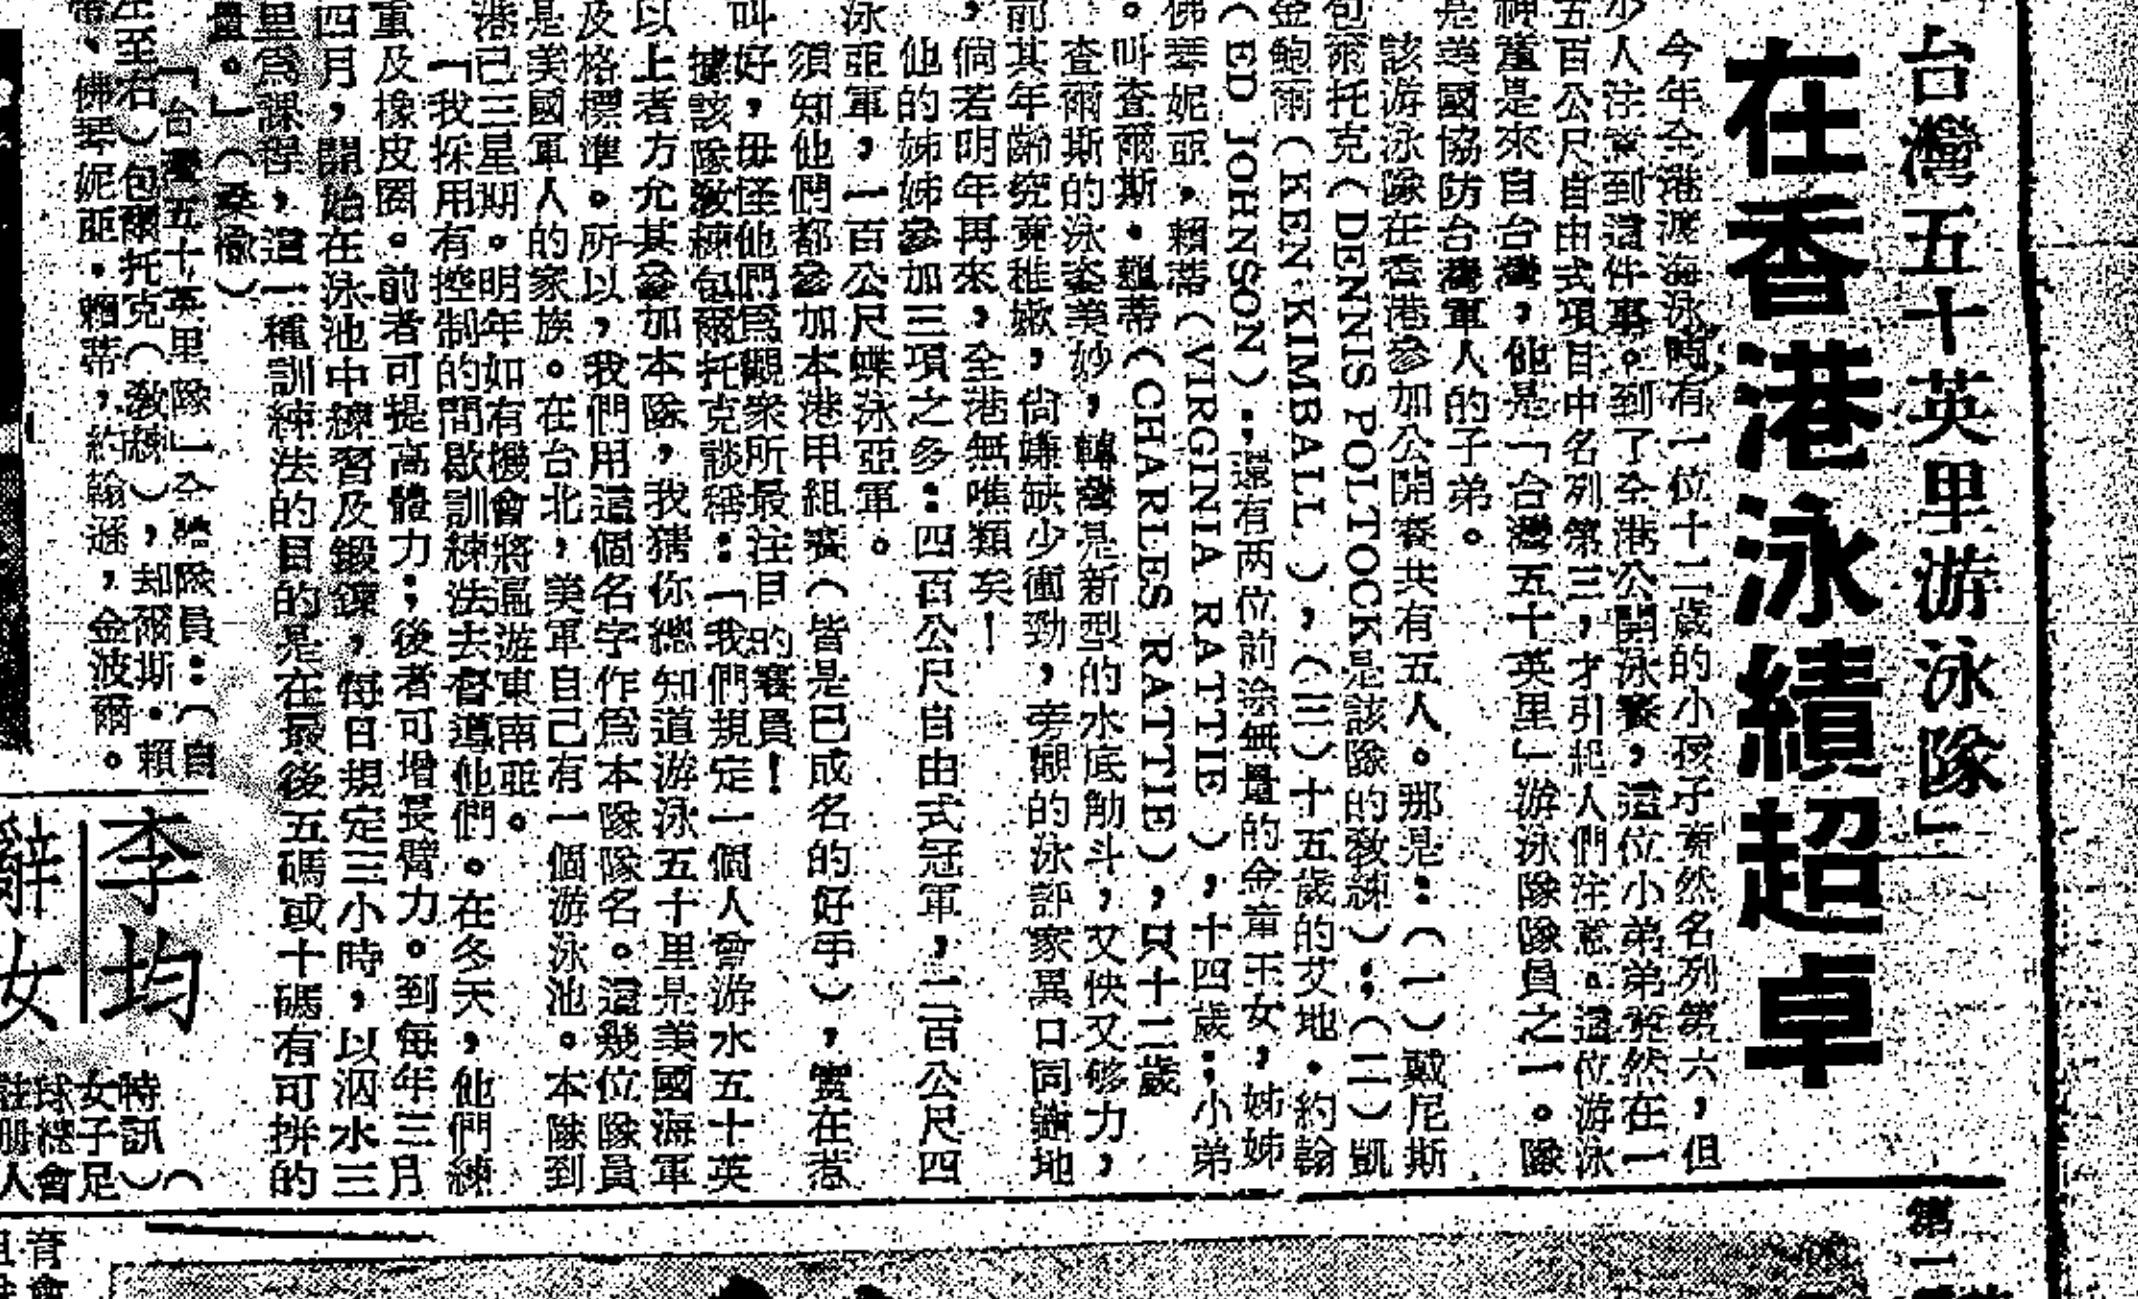 台灣五十英里游泳隊」
在香港泳績超卓
今年全港渡海泳時有一位十二歲的小孩子竟然名列第六，但
少人注意到這件事。到了全港公開泳賽，這位小弟弟竟然在一
五百公尺自由式項目中名列第三，才引起人們注意。這位游泳
神童是來自台灣，他是「台灣五十英里」游泳隊隊員之一。隊
是美國協防台灣軍人的子弟。
該游泳隊在香港參加公開賽共有五人。那是：（一）戴尼斯
包爾托克（DENNIS POLTOCK是該隊的教練）；（二）凱
金鮑爾（KEN KIMBALL），（三）十五歲的艾地．約翰
（ED JOHNSON）；還有两位前途無量的金童玉女，姊姊
佛琴妮亞，賴蒂（VIRGINIA RATTIE），十四歲；小弟
。叫查爾斯．賴蒂（CHARLES RATTIE），只十二歲
查爾斯的泳姿美妙，轉灣是新型的水底觔斗，又快又够力，
前其年齡究竟稚嫩，尙嫌缺少衝勁，旁觀的泳評家異口同聲地
，倘若明年再來，全港無噍類矣！
他的姊姊參加三項之多：四百公尺自由式冠軍，二百公尺四
泳亞軍，一百公尺蝶泳亞軍。
須知他們都參加本港甲組賽（皆是已成名的好手），實在惹
叫好，毋怪他們爲觀衆所最注目的賽員！
據該隊教練包爾托克談稱：「我們規定一個人會游水五十英
以上者方允其參加本隊，我猜你總知道游泳五十里是美國海軍
及格標準。所以，我們用這個名字作爲本隊隊名。這幾位隊員
是美國軍人的家族。在台北，美軍自己有一個游泳池。本隊到
港已三星期。明年如有機會將遍游東南亞。
「我採用有控制的間歇訓練法去督導他們。在冬天，他們練
重及橡皮圈。前者可提高體力；後者可增長臂力。到每年三月
四月，開始在泳池中練習及鍛鍊，每日規定三小時，以泅水三
里爲課程，這一種訓練法的目的是在最後五碼或十碼有可拼的
量。」（桑榆）
「台灣五十英里隊」全體隊員：（自
左至右）包爾托克（教練），却爾斯．賴
蒂、佛琴妮亞．賴蒂，約翰遜，金波爾。
李均
辭女
時訊）（
女子足
球 會
註册人
育會
第一